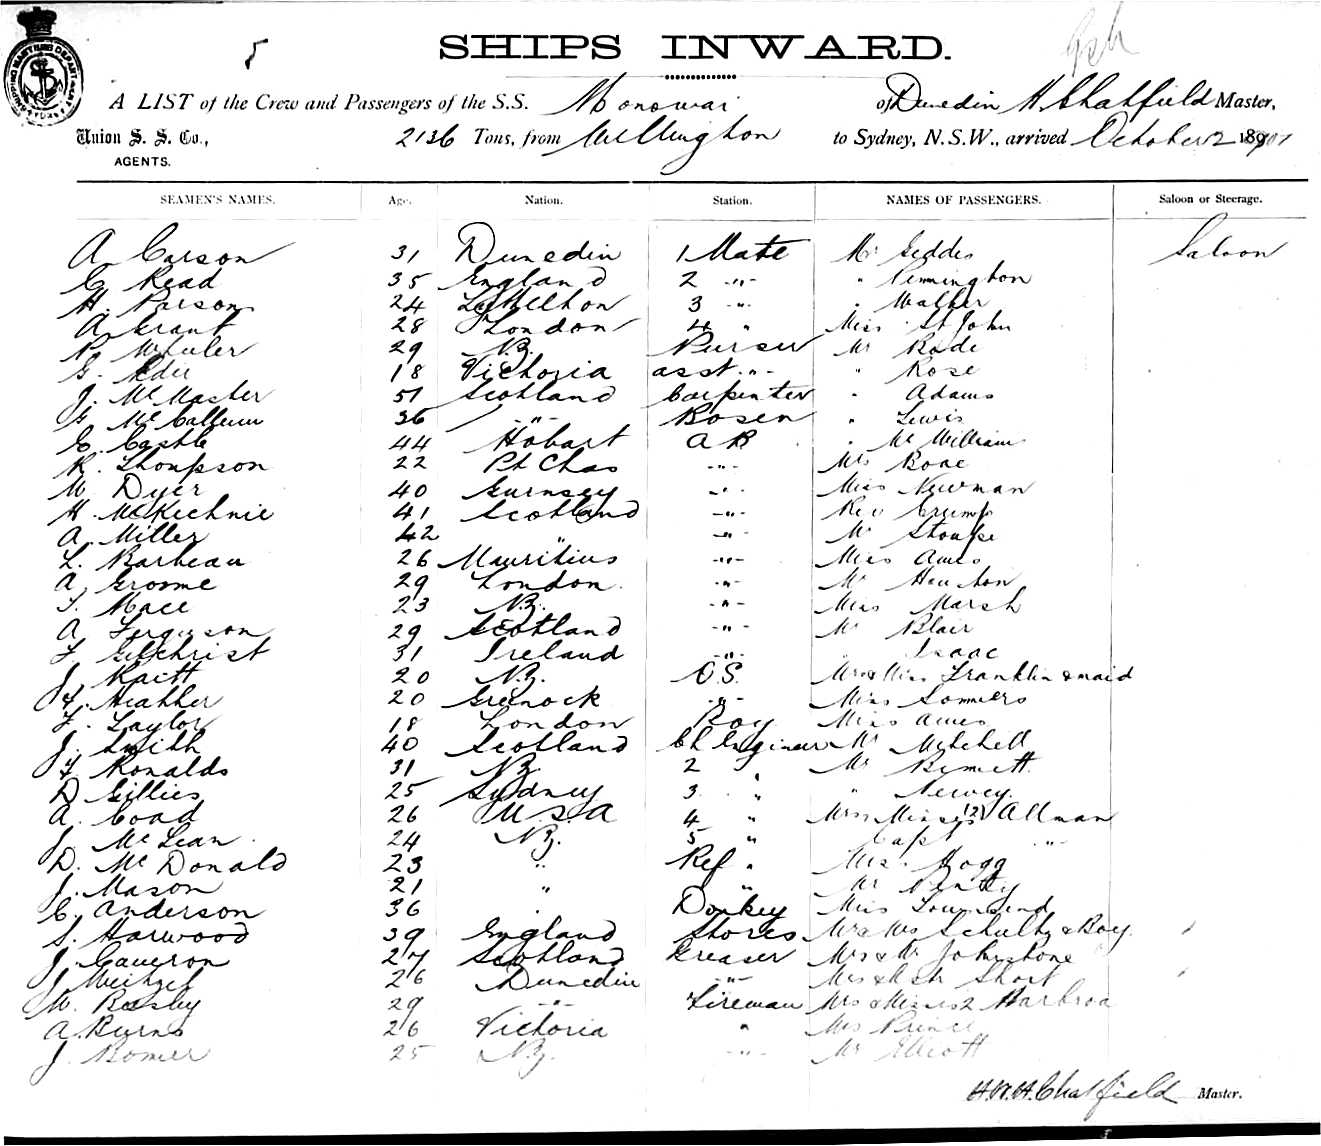 5
SHIPS INWARD.
A LIST of the Crew and Passengers of the S.S. Monowai of Dunedin H. Chatfield Master,
Union S. S. Co., 2136 Tons, from Wellington to Sydney, N.S.W., arrived October 2 1901
AGENTS.
SEAMEN'S NAMES. Age. Nation. Station. NAMES OF PASSENGERS. Saloon or Steerage.
A Carson 31 Dunedin 1 Mate Mr Geddes Saloon
C Read 35 England 2 -"- " Pennington
H. Parsons 24 Lyttelton 3 -"- " Walker
A Grant 28 London 4 " Miss St John
Wheeler 29 N.Z. Purser Mr Rode
G. 18 Victoria asst -"- " Rose
J. McMaster 51 Scotland Carpenter " Adams
G McCallum 36 -"- Bosen " Lewis
C. Castle 44 Hobart AB " McWilliams
R. Thompson 22 Pt Chas -"- Mrs
W Dyer 40 Gurnsey -"- Miss Newman
H. McKechnie 41 Scotland -"- Rev Crump
A. Miller 42 " -"- Mr
L. Barbeau 26 Mauritius -"- Miss Ames
A. Groome 29 London -"- Mr
T. Mace 23 N.Z. -"- Miss Marsh
A Ferguson 29 Scotland -"- Mr Blair
F Gilchrist 31 Ireland -"- " Isaac
J. Raitt 20 N.Z. O.S. Mrs & Miss Franklin & maid
F. Heather 20 Greenock -"- Miss Sommers
F. Taylor 18 London Boy Miss Ames
J. Smith 40 Scotland Ch Engineer Mr Mitchell
F Ronalds 31 N.Z. 2 " Mr
D Gillies 25 Sydney 3 " " Newey
A. Coad 26 U.S.A 4 " Mrs Misses (2) Allman
J. McLean 24 N.Z. 5 " Capt -"-
D. McDonald 23 " Ref " Mrs Hogg
J. Mason 21 " " Mr
C. Anderson 36 " Donkey Miss Townsend
S. Harwood 39 England Stores Mr & Mrs Schultz & Boy
J. Cameron 27 Scotland Greaser Mrs & Mr Johnstone
J 26 Dunedin -"- Short
W. Beesby 29 -"- Fireman Mrs & Misses 2
A. Burns 26 Victoria " Mrs Prince
J. Bomer 25 N.Z. -"- Mr Elliott
H.W.H. Chatfield Master.